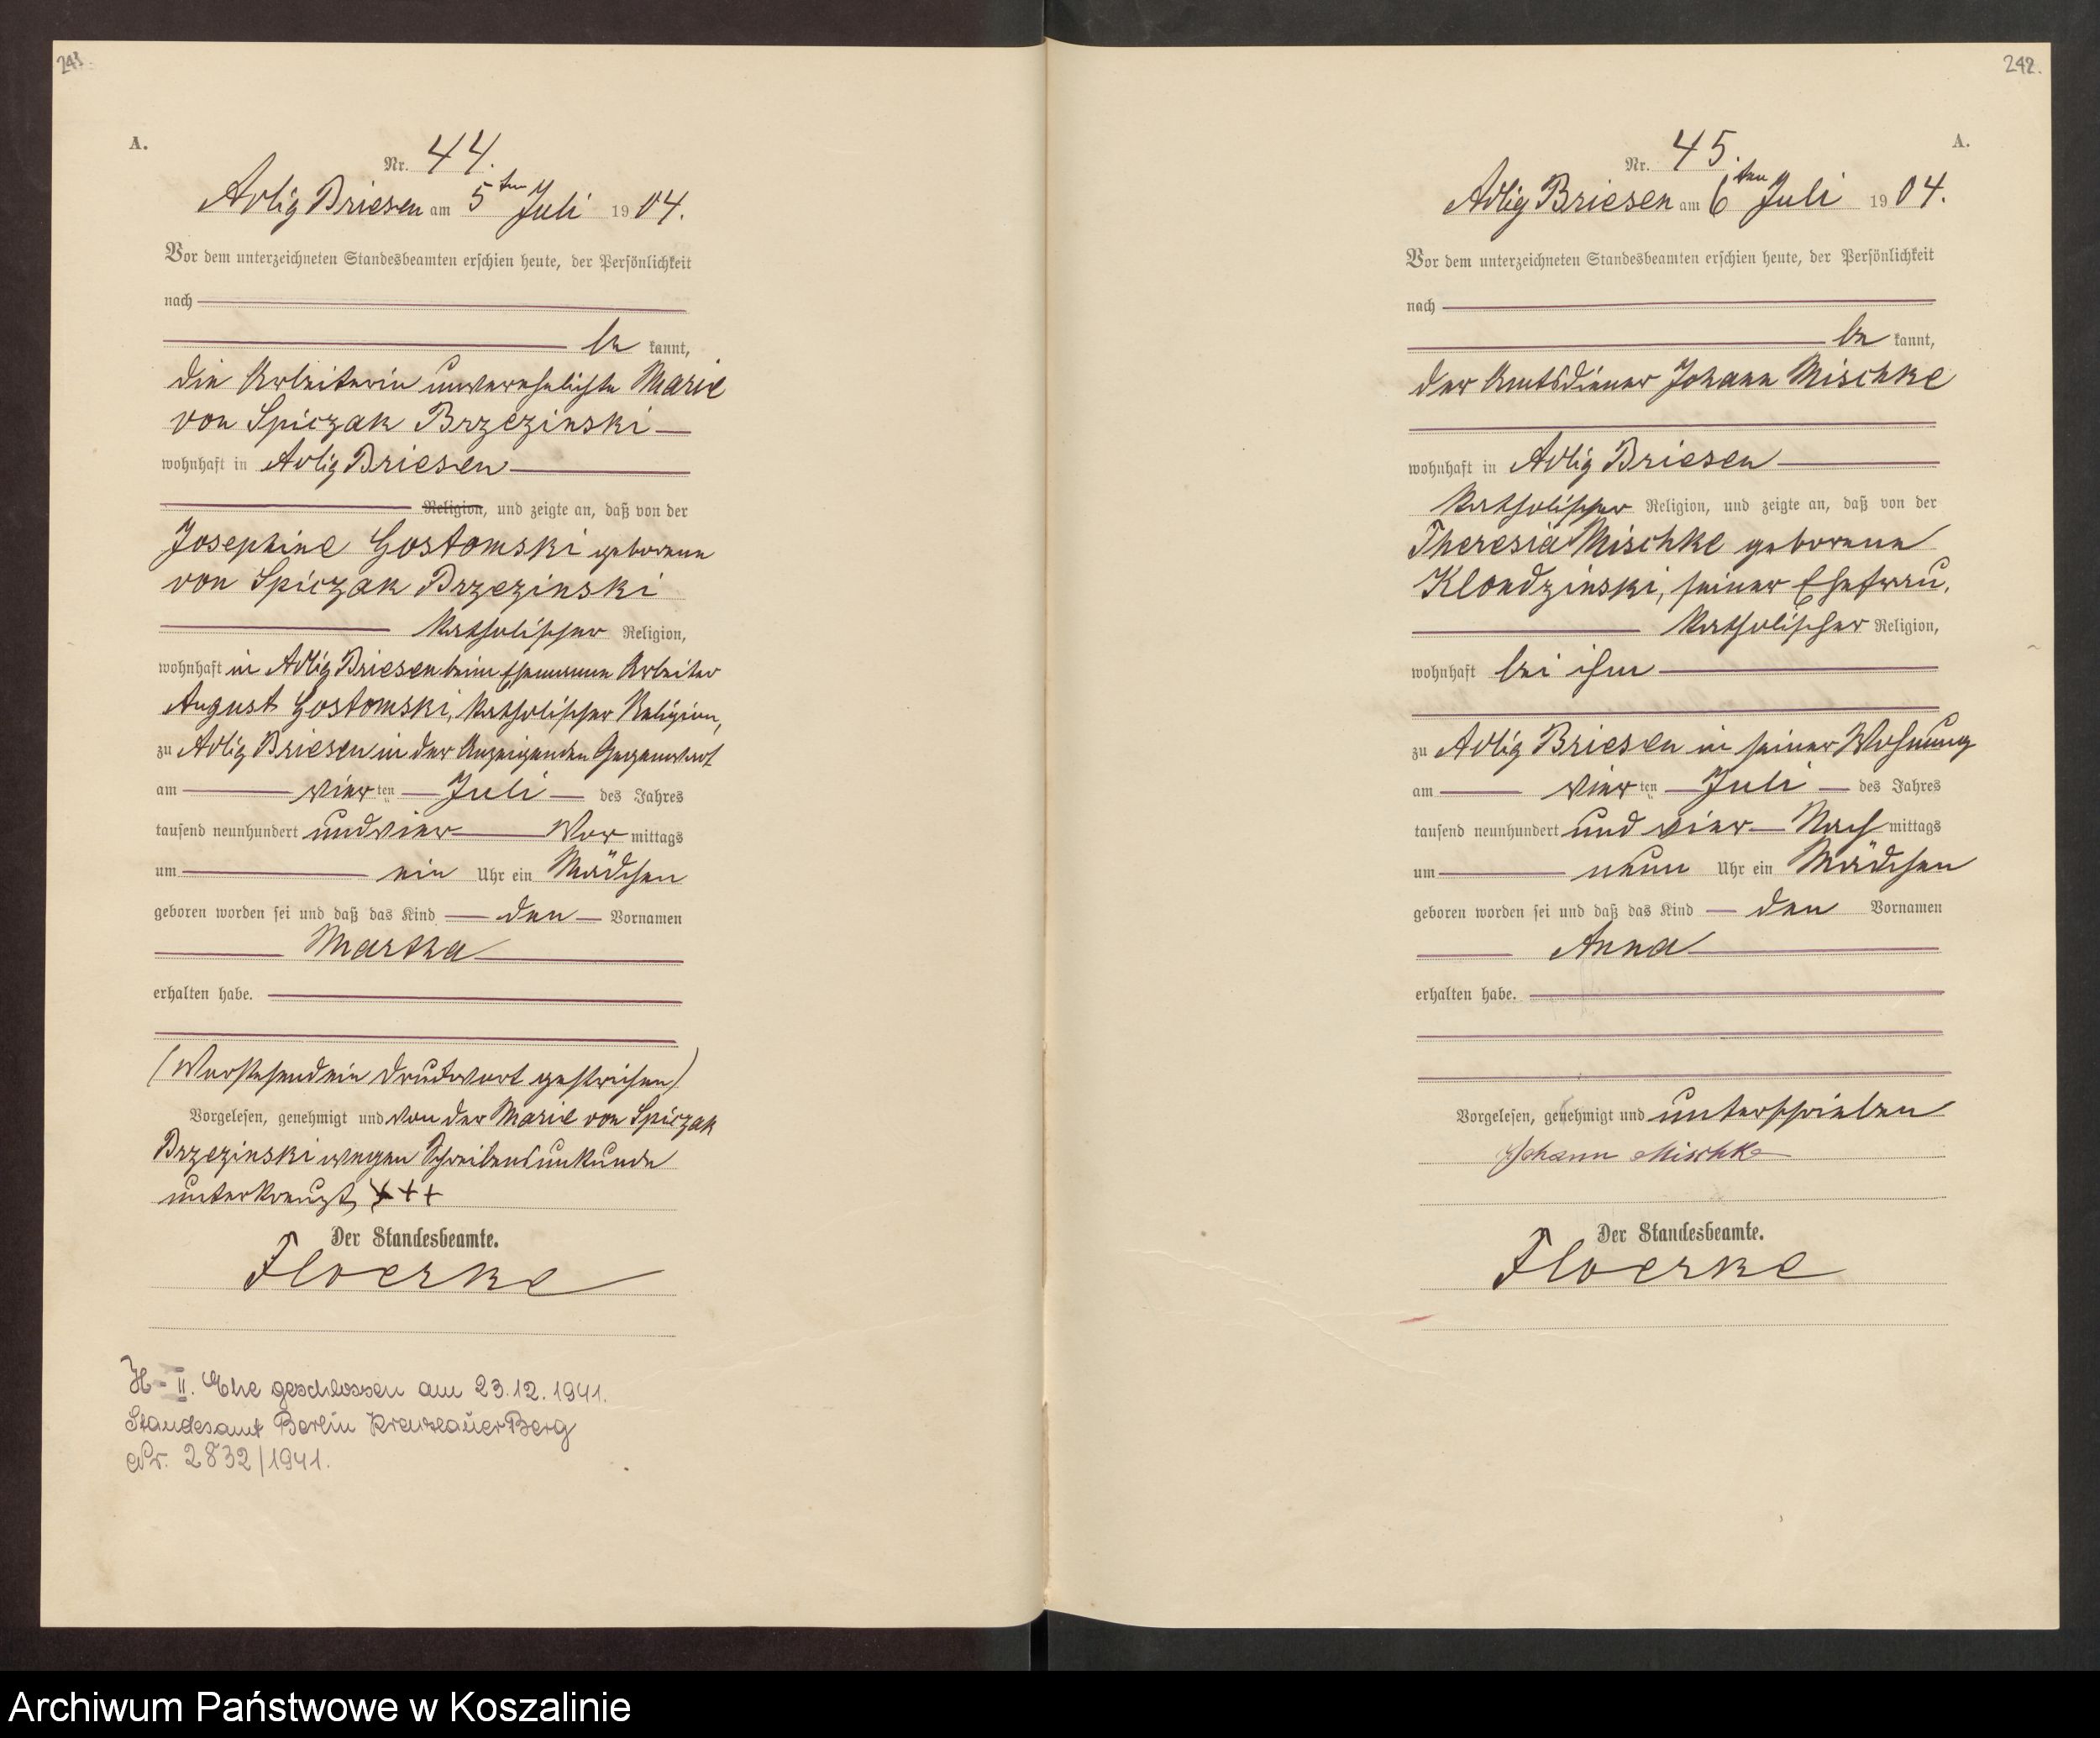 243.
A.
Nr. 44.
Adlig Briesen am 5ten Juli 1904.
Vor dem unterzeichneten Standesbeamten erschien heute, der Persönlichkeit
nach
be kannt,
die Arbeiterin unverehelichte Marie
von Spiczak Brzezinski
wohnhaft in Adlig Briesen
Religion, und zeigte an, daß von der
Josephine Gostomski geborene
von Spiczak Brzezinski
katholischer Religion,
wohnhaft in Adlig Briesen beim Ehemanne Arbeiter
August Gostomski, katholischer Religion,
zu Adlig Briesen in der Anzeigenden Gegenwart
am vier ten Juli des Jahres
tausend neunhundert und vier Vor mittags
um ein Uhr ein Mädchen
geboren worden sei und daß das Kind den Vornamen
Martha
erhalten habe.
(Vorstehend ein Druckwort gestrichen)
Vorgelesen, genehmigt und von der Marie von Spiczak
Brzezinski wegen Schreibensunkunde
unterkreuzt, +++
Der Standesbeamte.
Floerke
H - II. Ehe geschlossen am 23.12.1941.
Standesamt Berlin Prenzlauer Berg
Nr. 2832/1941.
242.
A.
Nr. 45.
Adlig Briesen am 6ten Juli 1904.
Vor dem unterzeichneten Standesbeamten erschien heute, der Persönlichkeit
nach
be kannt,
der Amtsdiener Johann Mischke
wohnhaft in Adlig Briesen
katholischer Religion, und zeigte an, daß von der
Theresia Mischke geborene
Klondzinski, seiner Ehefrau,
katholischer Religion,
wohnhaft bei ihm
zu Adlig Briesen in seiner Wohnung
am vier ten Juli des Jahres
tausend neunhundert und vier Nach mittags
um neun Uhr ein Mädchen
geboren worden sei und daß das Kind den Vornamen
Anna
erhalten habe.
Vorgelesen, genehmigt und unterschrieben
Johann Mischke
Der Standesbeamte.
Floerke
Archiwum Państwowe w Koszalinie